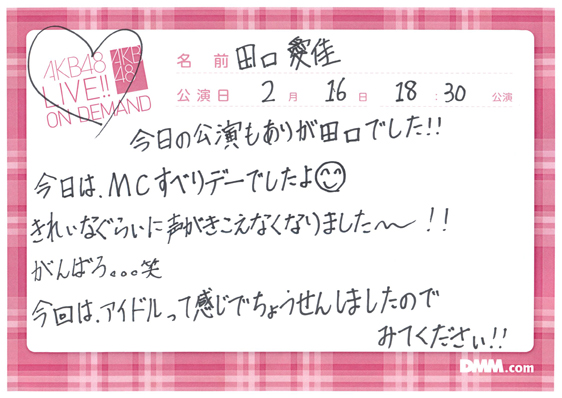 AKB48
LIVE!!
ON DEMAND
AKB
48
名前 田口 愛佳
公演日 2月 16日 18:30 公演
今日の公演もありが田口でした!!
今日は、MCすべりデーでしたよ
きれいなぐらいに声がきこえなくなりました〜!!
がんばろ。。。笑
今回は、アイドルって感じでちょうせんしましたので
みてください!!
DMM.com